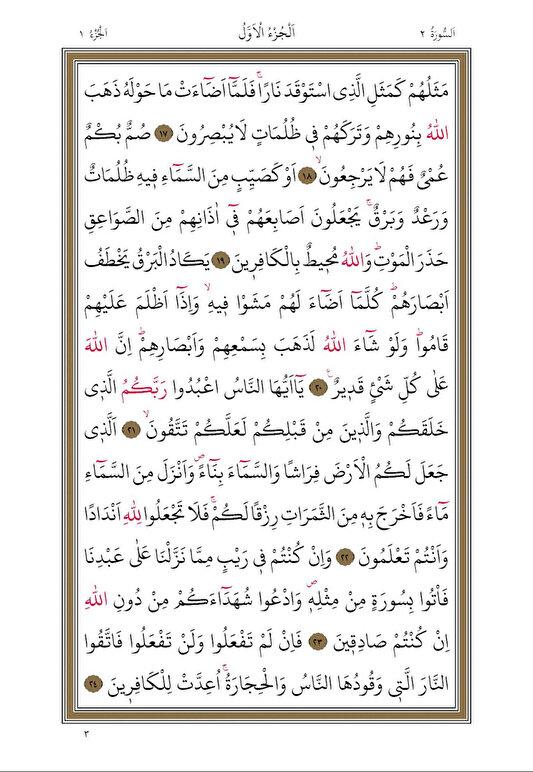 اَلسُّورَةُ ٢ اَلْجُزْءُ الْاَوَّلُ اَلْجُزْءُ ١
مَثَلُهُمْ كَمَثَلِ الَّذِي اسْتَوْقَدَ نَارًاۚ فَلَمَّٓا اَضَٓاءَتْ مَا حَوْلَهُ ذَهَبَ
اللّٰهُ بِنُورِهِمْ وَتَرَكَهُمْ ف۪ي ظُلُمَاتٍ لَا يُبْصِرُونَ ﴿١٧﴾ صُمٌّ بُكْمٌ
عُمْيٌ فَهُمْ لَا يَرْجِعُونَۙ ﴿١٨﴾ اَوْ كَصَيِّبٍ مِنَ السَّمَٓاءِ ف۪يهِ ظُلُمَاتٌ
وَرَعْدٌ وَبَرْقٌۚ يَجْعَلُونَ اَصَابِعَهُمْ ف۪ٓي اٰذَانِهِمْ مِنَ الصَّوَاعِقِ
حَذَرَ الْمَوْتِۜ وَاللّٰهُ مُح۪يطٌ بِالْكَافِر۪ينَ ﴿١٩﴾ يَكَادُ الْبَرْقُ يَخْطَفُ
اَبْصَارَهُمْۜ كُلَّمَٓا اَضَٓاءَ لَهُمْ مَشَوْا ف۪يهِۙ وَاِذَٓا اَظْلَمَ عَلَيْهِمْ
قَامُواۜ وَلَوْ شَٓاءَ اللّٰهُ لَذَهَبَ بِسَمْعِهِمْ وَاَبْصَارِهِمْۜ اِنَّ اللّٰهَ
عَلٰى كُلِّ شَيْءٍ قَد۪يرٌ۟ ﴿٢٠﴾ يَٓا اَيُّهَا النَّاسُ اعْبُدُوا رَبَّكُمُ الَّذ۪ي
خَلَقَكُمْ وَالَّذ۪ينَ مِنْ قَبْلِكُمْ لَعَلَّكُمْ تَتَّقُونَۙ ﴿٢١﴾ اَلَّذ۪ي
جَعَلَ لَكُمُ الْاَرْضَ فِرَاشًا وَالسَّمَٓاءَ بِنَٓاءًۖ وَاَنْزَلَ مِنَ السَّمَٓاءِ
مَٓاءً فَاَخْرَجَ بِه۪ مِنَ الثَّمَرَاتِ رِزْقًا لَكُمْۚ فَلَا تَجْعَلُوا لِلّٰهِ اَنْدَادًا
وَاَنْتُمْ تَعْلَمُونَ ﴿٢٢﴾ وَاِنْ كُنْتُمْ ف۪ي رَيْبٍ مِمَّا نَزَّلْنَا عَلٰى عَبْدِنَا
فَأْتُوا بِسُورَةٍ مِنْ مِثْلِه۪ۖ وَادْعُوا شُهَدَٓاءَكُمْ مِنْ دُونِ اللّٰهِ
اِنْ كُنْتُمْ صَادِق۪ينَ ﴿٢٣﴾ فَاِنْ لَمْ تَفْعَلُوا وَلَنْ تَفْعَلُوا فَاتَّقُوا
النَّارَ الَّت۪ي وَقُودُهَا النَّاسُ وَالْحِجَارَةُۚ اُعِدَّتْ لِلْكَافِر۪ينَ ﴿٢٤﴾
٣